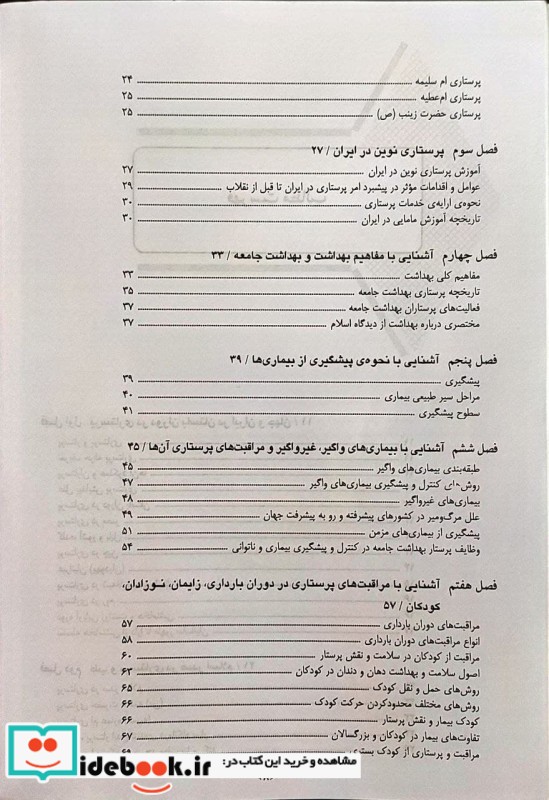 پرستاری ام سلیمه ........ ۲۴
پرستاری ام‌عطیه ........ ۲۵
پرستاری حضرت زینب (ص) ........ ۲۵
فصل سوم پرستاری نوین در ایران / ۲۷
آموزش پرستاری نوین در ایران ........ ۲۷
عوامل و اقدامات مؤثر در پیشبرد امر پرستاری در ایران تا قبل از نقلاب ........ ۲۹
نحوه‌ی ارایه‌ی خدمات پرستاری ........ ۳۰
تاریخچه آموزش مامایی در ایران ........ ۳۰
فصل چهارم آشنایی با مفاهیم بهداشت و بهداشت جامعه / ۳۳
مفاهیم کلی بهداشت ........ ۳۳
تاریخچه پرستاری بهداشت جامعه ........ ۳۵
فعالیت‌های پرستاران بهداشت جامعه ........ ۳۷
مختصری درباره بهداشت از دیدگاه اسلام ........ ۳۷
فصل پنجم آشنایی با نحوه‌ی پیشگیری از بیماری‌ها / ۳۹
پیشگیری ........ ۳۹
مراحل سیر طبیعی بیماری ........ ۴۰
سطوح پیشگیری ........ ۴۱
فصل ششم آشنایی با بیماری‌های واگیر، غیرواگیر و مراقبت‌های پرستاری آن‌ها / ۴۵
طبقه‌بندی بیماری‌های واگیر ........ ۴۵
روش‌های کنترل و پیشگیری بیماری‌های واگیر ........ ۴۷
بیماری‌های غیرواگیر ........ ۴۸
علل مرگ‌ومیر در کشورهای پیشرفته و رو به پیشرفت جهان ........ ۴۹
پیشگیری از بیماری‌های مزمن ........ ۵۱
وظایف پرستار بهداشت جامعه در کنترل و پیشگیری بیماری و ناتوانی ........ ۵۴
فصل هفتم آشنایی با مراقبت‌های پرستاری در دوران بارداری، زایمان، نوزادان،
کودکان / ۵۷
مراقبت‌های دوران بارداری ........ ۵۷
انواع مراقبت‌های دوران بارداری ........ ۵۸
مراقبت از کودکان در سلامت و نقش پرستار ........ ۶۰
اصول سلامت و بهداشت دهان و دندان در کودکان ........ ۶۳
روش‌های حمل و نقل کودک ........ ۶۵
روش‌های مختلف محدودکردن حرکت کودک ........ ۶۶
کودک بیمار و نقش پرستار ........ ۶۶
تفاوت‌های بیمار در کودکان و بزرگسالان ........ ۶۷
مراقبت و پرستاری از کودک بستری ........ ۶۹
مشاهده و خرید این کتاب در:
idebook.ir